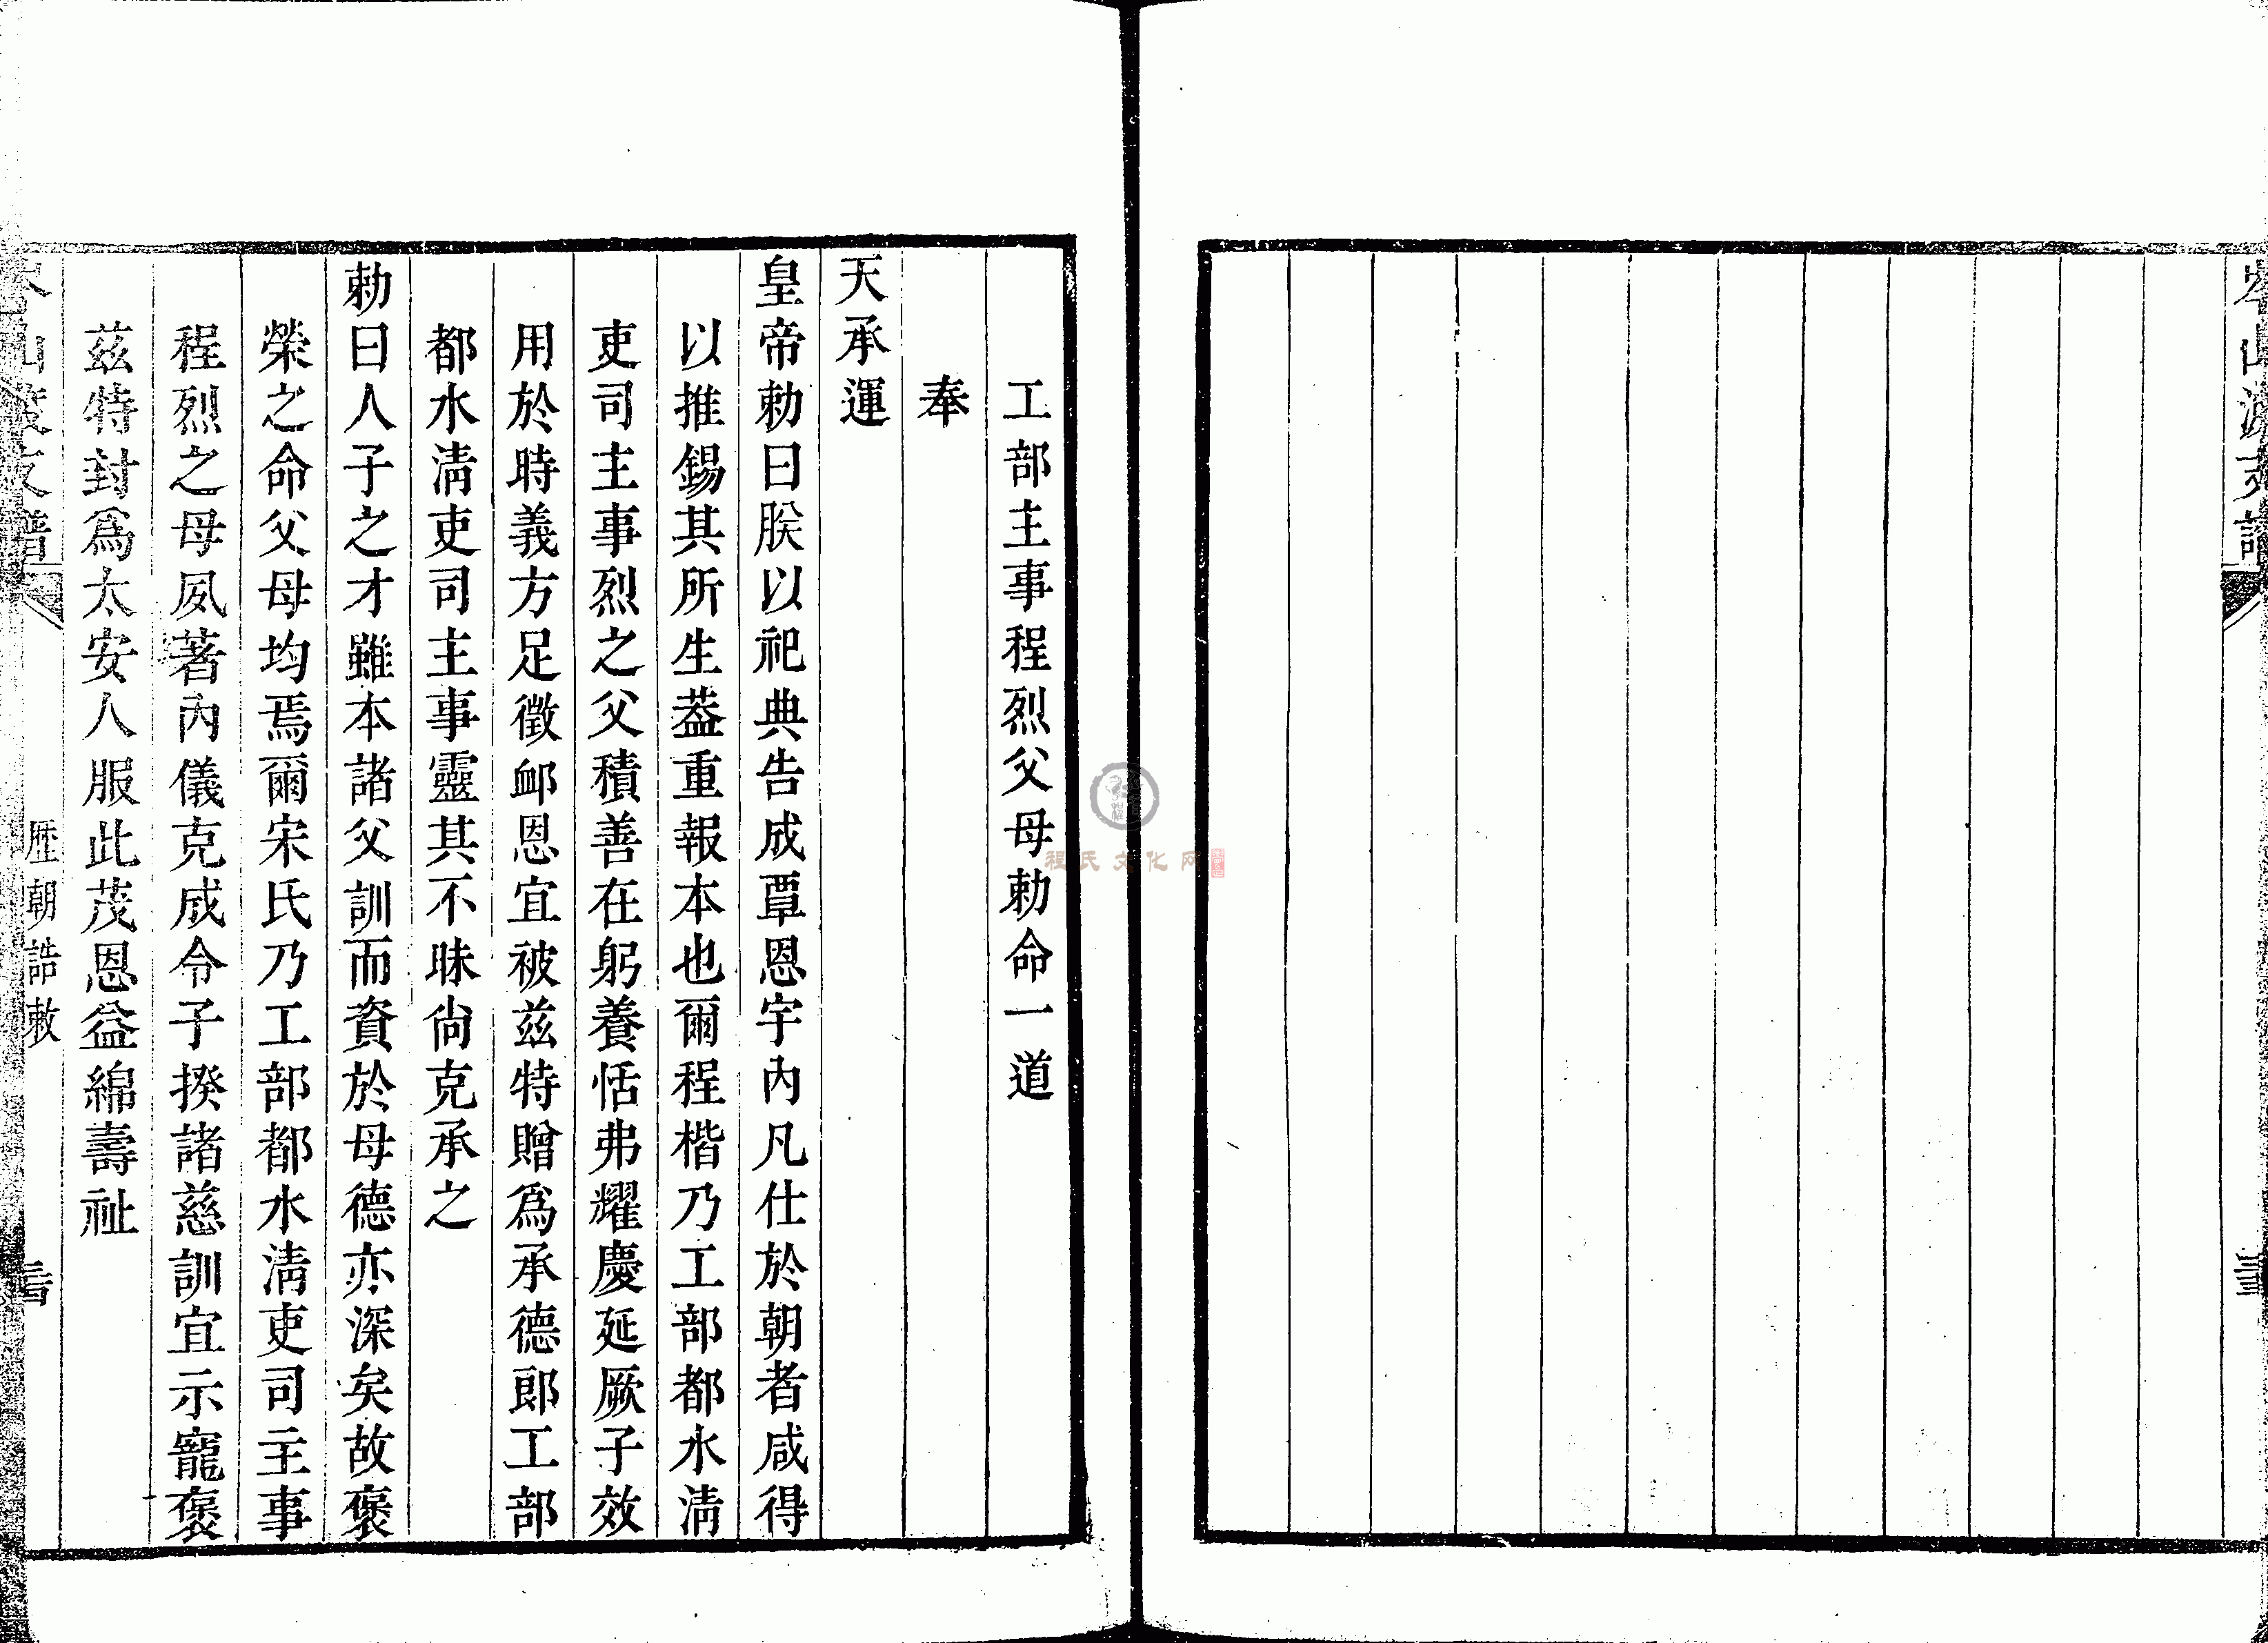 工部主事程烈父母勅命一道
奉
天承運
皇帝勅曰朕以祀典告成覃恩宇內凡仕於朝者咸得
以推錫其所生葢重報本也爾程楷乃工部都水淸
吏司主事烈之父積善在躬養恬弗耀慶延厥子效
用於時義方足徵䘏恩宜被兹特贈爲承德郎工部
都水淸吏司主事靈其不昧尙克承之
勅曰人子之才雖本諸父訓而資於母德亦深矣故褒
榮之命父母均焉爾宋氏乃工部都水淸吏司主事
程烈之母夙著內儀克成令子揆諸慈訓宜示寵褒
兹特封爲太安人服此茂恩益綿壽祉
歴朝誥敕
程氏文化网